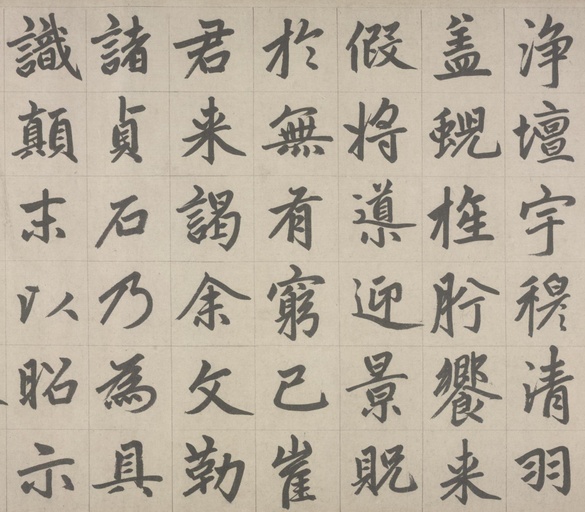 浄壇宇穆清羽
盖蜺旌肹饗来
假将導迎景貺
於無有窮已崔
君来謁余文勒
諸貞石乃為具
識顛末以昭示